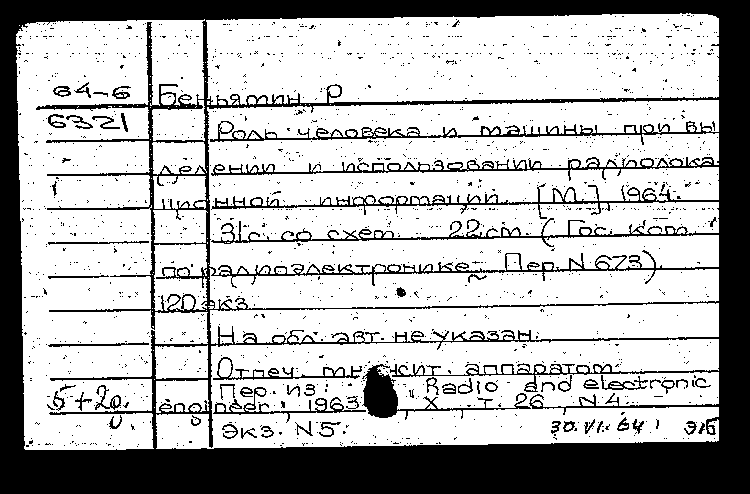 64-6 Беньямин, Р
6321 Роль человека и машины при вы
делении и использовании радиолока
ционной информации. [М.], 1964.
31с. со схем. 22см. (Гос. ком.
по радиоэлектронике. Пер. N 673).
120 экз.
На обл. авт. не указан.
Отпеч. множит. аппаратом
Пер. из: Radio and electronic
5+2д. engineer, 1963, X, т. 26, N 4
Экз. N5. 30.VI.64 Э1Б